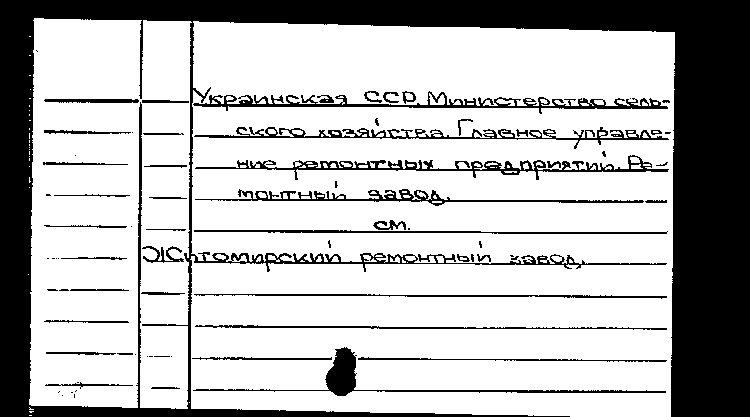 Украинская ССР. Министерство сель-
ского хозяйства. Главное управле-
ние ремонтных предприятий. Ре-
монтный завод.
см.
Житомирский ремонтный завод.